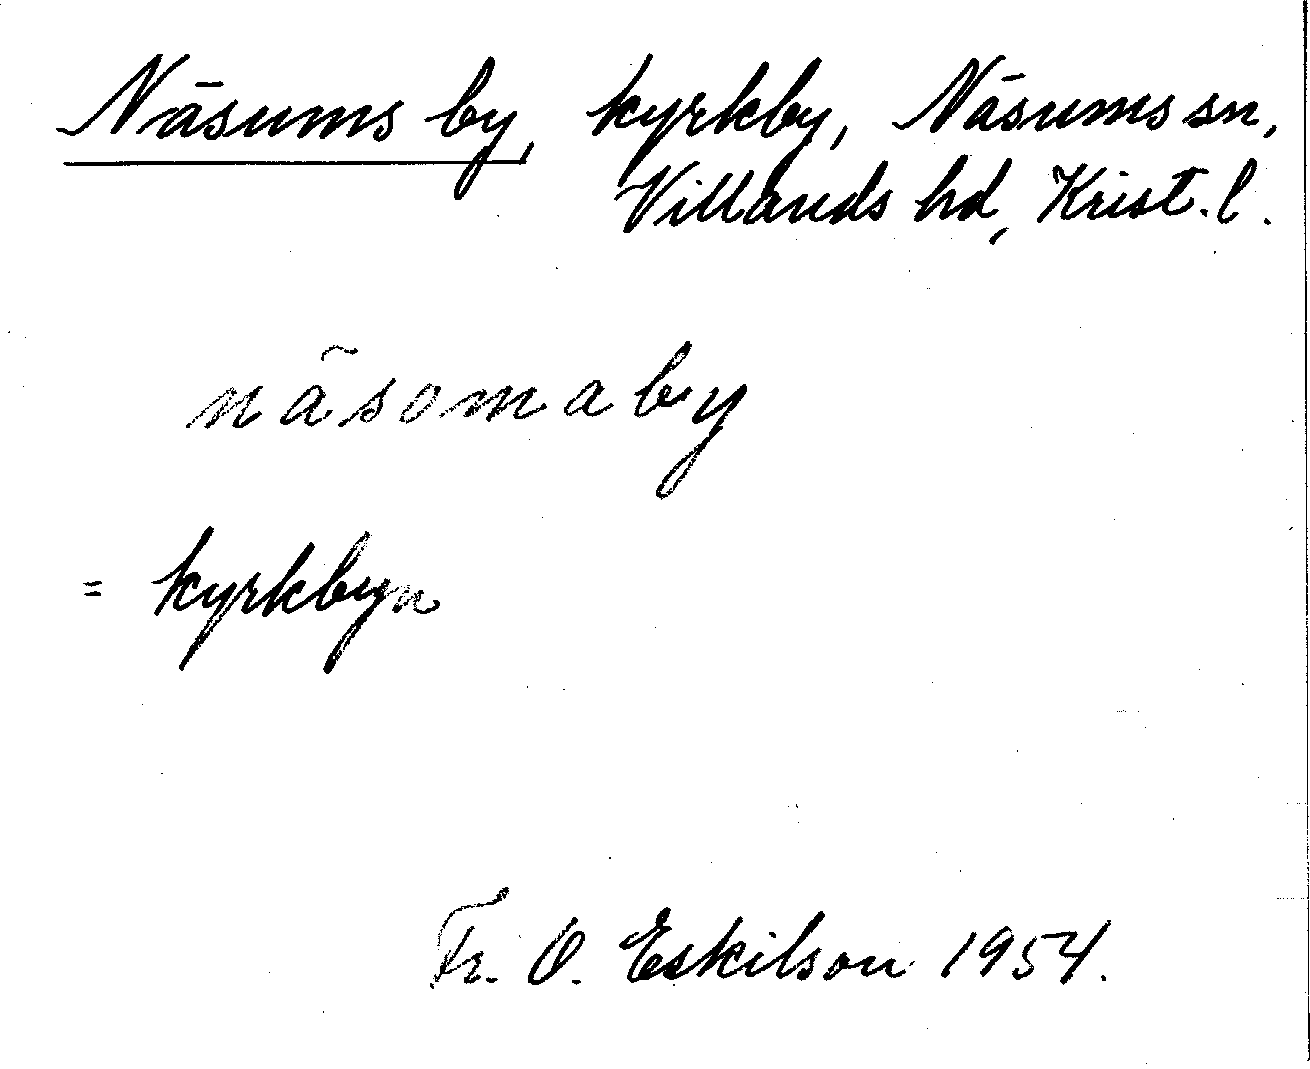 Näsums by, kyrkby, Näsums sn,
Villands hd, Krist. l.
näsomaby
= kyrkbyn
Fr. O. Eskilson 1954.